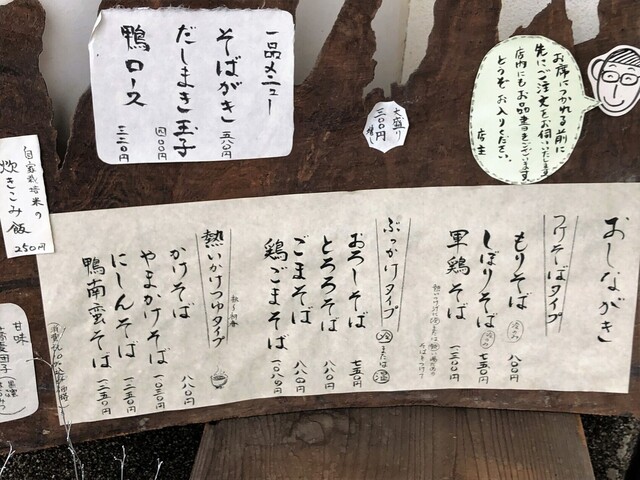 一品メニュー
そばがき 五八〇円
だしまき玉子 四〇〇円
鴨ロース 三二〇円
大盛り
三〇〇円
増し
お席につかれる前に
先にご注文をお伺いいたします
店内にもお品書きございます
どうぞ お入りください
店主
自家栽培米の
炊きこみ飯
250円
甘味
おしながき
つけそばタイプ
もりそば 冷のみ 八〇〇円
しぼりそば 冷のみ 七五〇円
軍鶏そば 一三〇〇円
ぶっかけタイプ 冷または温
おろしそば 七五〇円
とろろそば 八八〇円
ごまそば 八八〇円
鶏ごまそば 一〇八〇円
熱いかけつゆタイプ
かけそば 八八〇円
やまかけそば 一〇三〇円
にしんそば 一二五〇円
鴨南蛮そば 一二五〇円